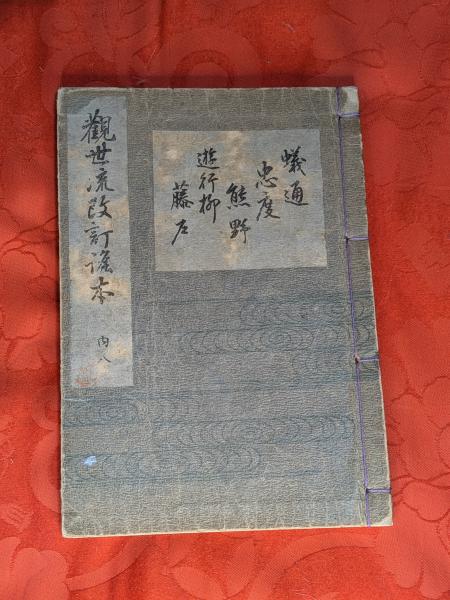 觀世流改訂謠本
内八
蟻通
忠度
熊野
遊行柳
藤戸